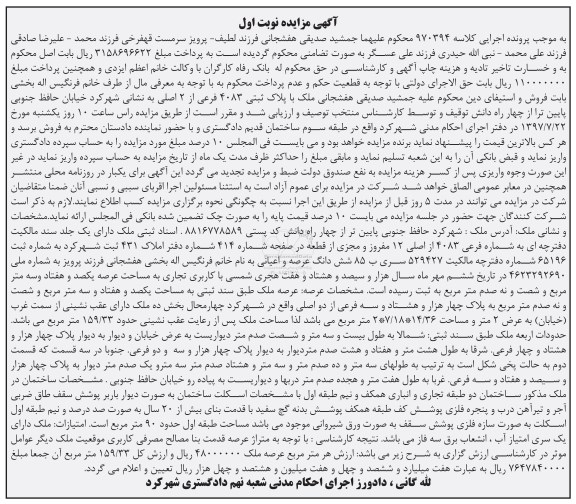 آگهی مزایده نوبت اول
به موجب پرونده اجرایی کلاسه ۹۷۰۳۹۴ محکوم علیهما جمشید صدیقی هفشجانی فرزند لطیف- پرویز سرمست قهفرخی فرزند محمد - علیرضا صادقی
فرزند علی محمد - نبی الله حیدری فرزند علی عسگر به صورت تضامنی محکوم گردیده است به پرداخت مبلغ ۳۱۵۸۶۹۶۶۲۲ ریال بابت اصل محکوم
به و خسارت تاخیر تادیه و هزینه چاپ آگهی و کارشناسی در حق محکوم له بانک رفاه کارگران با وکالت خانم اعظم ایزدی و همچنین پرداخت مبلغ
۱۱۰۰۰۰۰۰۰ ریال بابت حق الاجرای دولتی با توجه به قطعیت حکم و عدم پرداخت محکوم به با توجه به معرفی مال از طرف خانم فرنگیس اله بخشی
بابت فروش و استیفای دین محکوم علیه جمشید صدیقی هفشجانی ملک با پلاک ثبتی ۴۰۸۳ فرعی از ۲ اصلی به نشانی شهرکرد خیابان حافظ جنوبی
پایین ترا از چهار راه دانش توقیف و توسط کارشناس منتخب توصیف و ارزیابی شد و مقرر است از طریق مزایده راس ساعت ۱۰ روز یکشنبه مورخ
۱۳۹۷/۷/۲۲ در دفتر اجرای احکام مدنی شهرکرد واقع در طبقه سوم ساختمان قدیم دادگستری و با حضور نماینده دادستان محترم به فروش برسد و
هر کس بالاترین قیمت را پیشنهاد نماید برنده مزایده خواهد بود و می بایست فی المجلس ۱۰ درصد مبلغ مورد مزایده را به حساب سپرده دادگستری
واریز نماید و قبض بانکی آن را به این شعبه تسلیم نماید و مابقی مبلغ را حداکثر ظرف مدت یک ماه از تاریخ مزایده به حساب سپرده واریز نماید در غیر
این صورت وجوه واریزی پس از کسر هزینه مزایده به نفع صندوق دولت ضبط و مزایده تجدید می گردد این آگهی برای یکبار در روزنامه محلی منتشر
همچنین در معابر عمومی الصاق خواهد شد شرکت در مزایده برای عموم آزاد است به استثنا مسئولین اجرا اقربای سببی و نسبی آنان ضمنا متقاضیان
شرکت در مزایده می توانند در مدت ۵ روز قبل از مزایده از طریق این اجرا نسبت به چگونگی نحوه برگزاری مزایده کسب اطلاع نمایند.لازم به ذکر است
شرکت کنندگان جهت حضور در جلسه مزایده می بایست ۱۰ درصد قیمت پایه را به صورت چک تضمین شده بانکی فی المجلس ارائه نماید.مشخصات
و نشانی ملک: آدرس ملک : شهرکرد حافظ جنوبی پایین تر از چهار راه دانش کد پستی ۸۸۱۶۷۷۸۵۸۹ . اسناد ثبتی ملک دارای یک جلد سند مالکیت
دفترچه ای به شماره فرعی ۴۰۸۳ از اصلی ۱۲ مفروز و مجزی از قطعه در صفحه شماره ۴۱۴ شماره دفتر املاک ۴۳۱ ثبت شهرکرد به شماره ثبت
۶۵۱۹۶ شماره دفترچه مالکیت ۵۲۹۴۲۷ سری ب ۸۵ شش دانگ عرصه و اعیانی به نام خانم فرنگیس اله بخشی هفشجانی فرزند پرویز به شماره ملی
۴۶۲۳۲۹۲۶۹۰ در تاریخ ششم مهر ماه سال هزار و سیصد و هشتاد و هفت هجری شمسی با کاربری تجاری به مساحت عرصه یکصد و هفتاد وسه متر
مربع و شصت و نه صدم متر مربع به ثبت رسیده است. مشخصات عرصه: عرصه ملک طبق سند ثبتی به مساحت یکصد و هفتاد و سه متر مربع و شصت
و نه صدم متر مربع به پلاک چهار هزار و هشتاد و سه فرعی از دو اصلی واقع در شهرکرد چهارمحال بخش ده ملک دارای عقب نشینی از سمت غرب
(خیابان) به عرض ۲ متر و مساحت ۱۴/۳۶=۲*۷/۱۸ متر مربع می باشد لذا مساحت ملک پس از رعایت عقب نشینی حدود ۱۵۹/۳۳ متر مربع می باشد.
حدودات اربعه ملک طبق سند ثبتی: شمالا به طول بیست و سه متر و شصت صدم متر دیواریست به عرض خیابان و دیوار به دیوار پلاک چهار هزار و
هشتاد و چهار فرعی، شرقا به طول هشت متر و هفتاد و هشت صدم متردیوار به دیوار پلاک چهار هزار و سه و دو فرعی، جنوبا در سه قسمت که قسمت
دوم به حالت پخی شکل است به ترتیب به طولهای سه متر و ده صدم متر و سه متر و هشتاد صدم متر سه مترو یک صدم متر دیوار به پلاک چهار هزار
و سیصد و هفتاد و سه فرعی، غربا به طول هفت متر و هجده صدم متر دربها و دیواریست به پیاده رو خیابان حافظ جنوبی . مشخصات ساختمان در
ملک مذکور ساختمان دو طبقه تجاری و انباری همکف و نیم طبقه اول با مشخصات اسکلت ساختمان به صورت دیوار باربر پوشش سقف طاق ضربی
آجر و تیرآهن درب و پنجره فلزی پوشش کف طبقه همکف پوشش بدنه گچ سفید با قدمت بنای بیش از ۲۰ سال به صورت صد درصد و نیم طبقه اول
اسکلت به صورت سازه فلزی پوشش سقف به صورت ورق شیروانی موجود می باشد مساحت طبقه اول حدود ۹۰ متر مربع است. امتیازات: ملک دارای
یک سری امتیاز آب ، انشعاب برق سه فاز می باشد. نتیجه کارشناسی : با توجه به متراژ عرصه قدمت بنا مصالح مصرفی کاربری موقعیت ملک دیگر عوامل
موثر در کارشناسی ارزش گزاری به شرح زیر می باشد: ارزش هر متر مربع عرصه ملک ۴۸۰۰۰۰۰۰ ریال و ارزش کل ۱۵۹/۳۳ متر مربع آن جمعا مبلغ
۷۶۴۷۸۴۰۰۰۰ ریال به عبارت هفت میلیارد و ششصد و چهل و هفت میلیون و هشتصد و چهل هزار ریال تعیین و اعلام می گردد.
لله گانی ، دادورز اجرای احکام مدنی شعبه نهم دادگستری شهرکرد